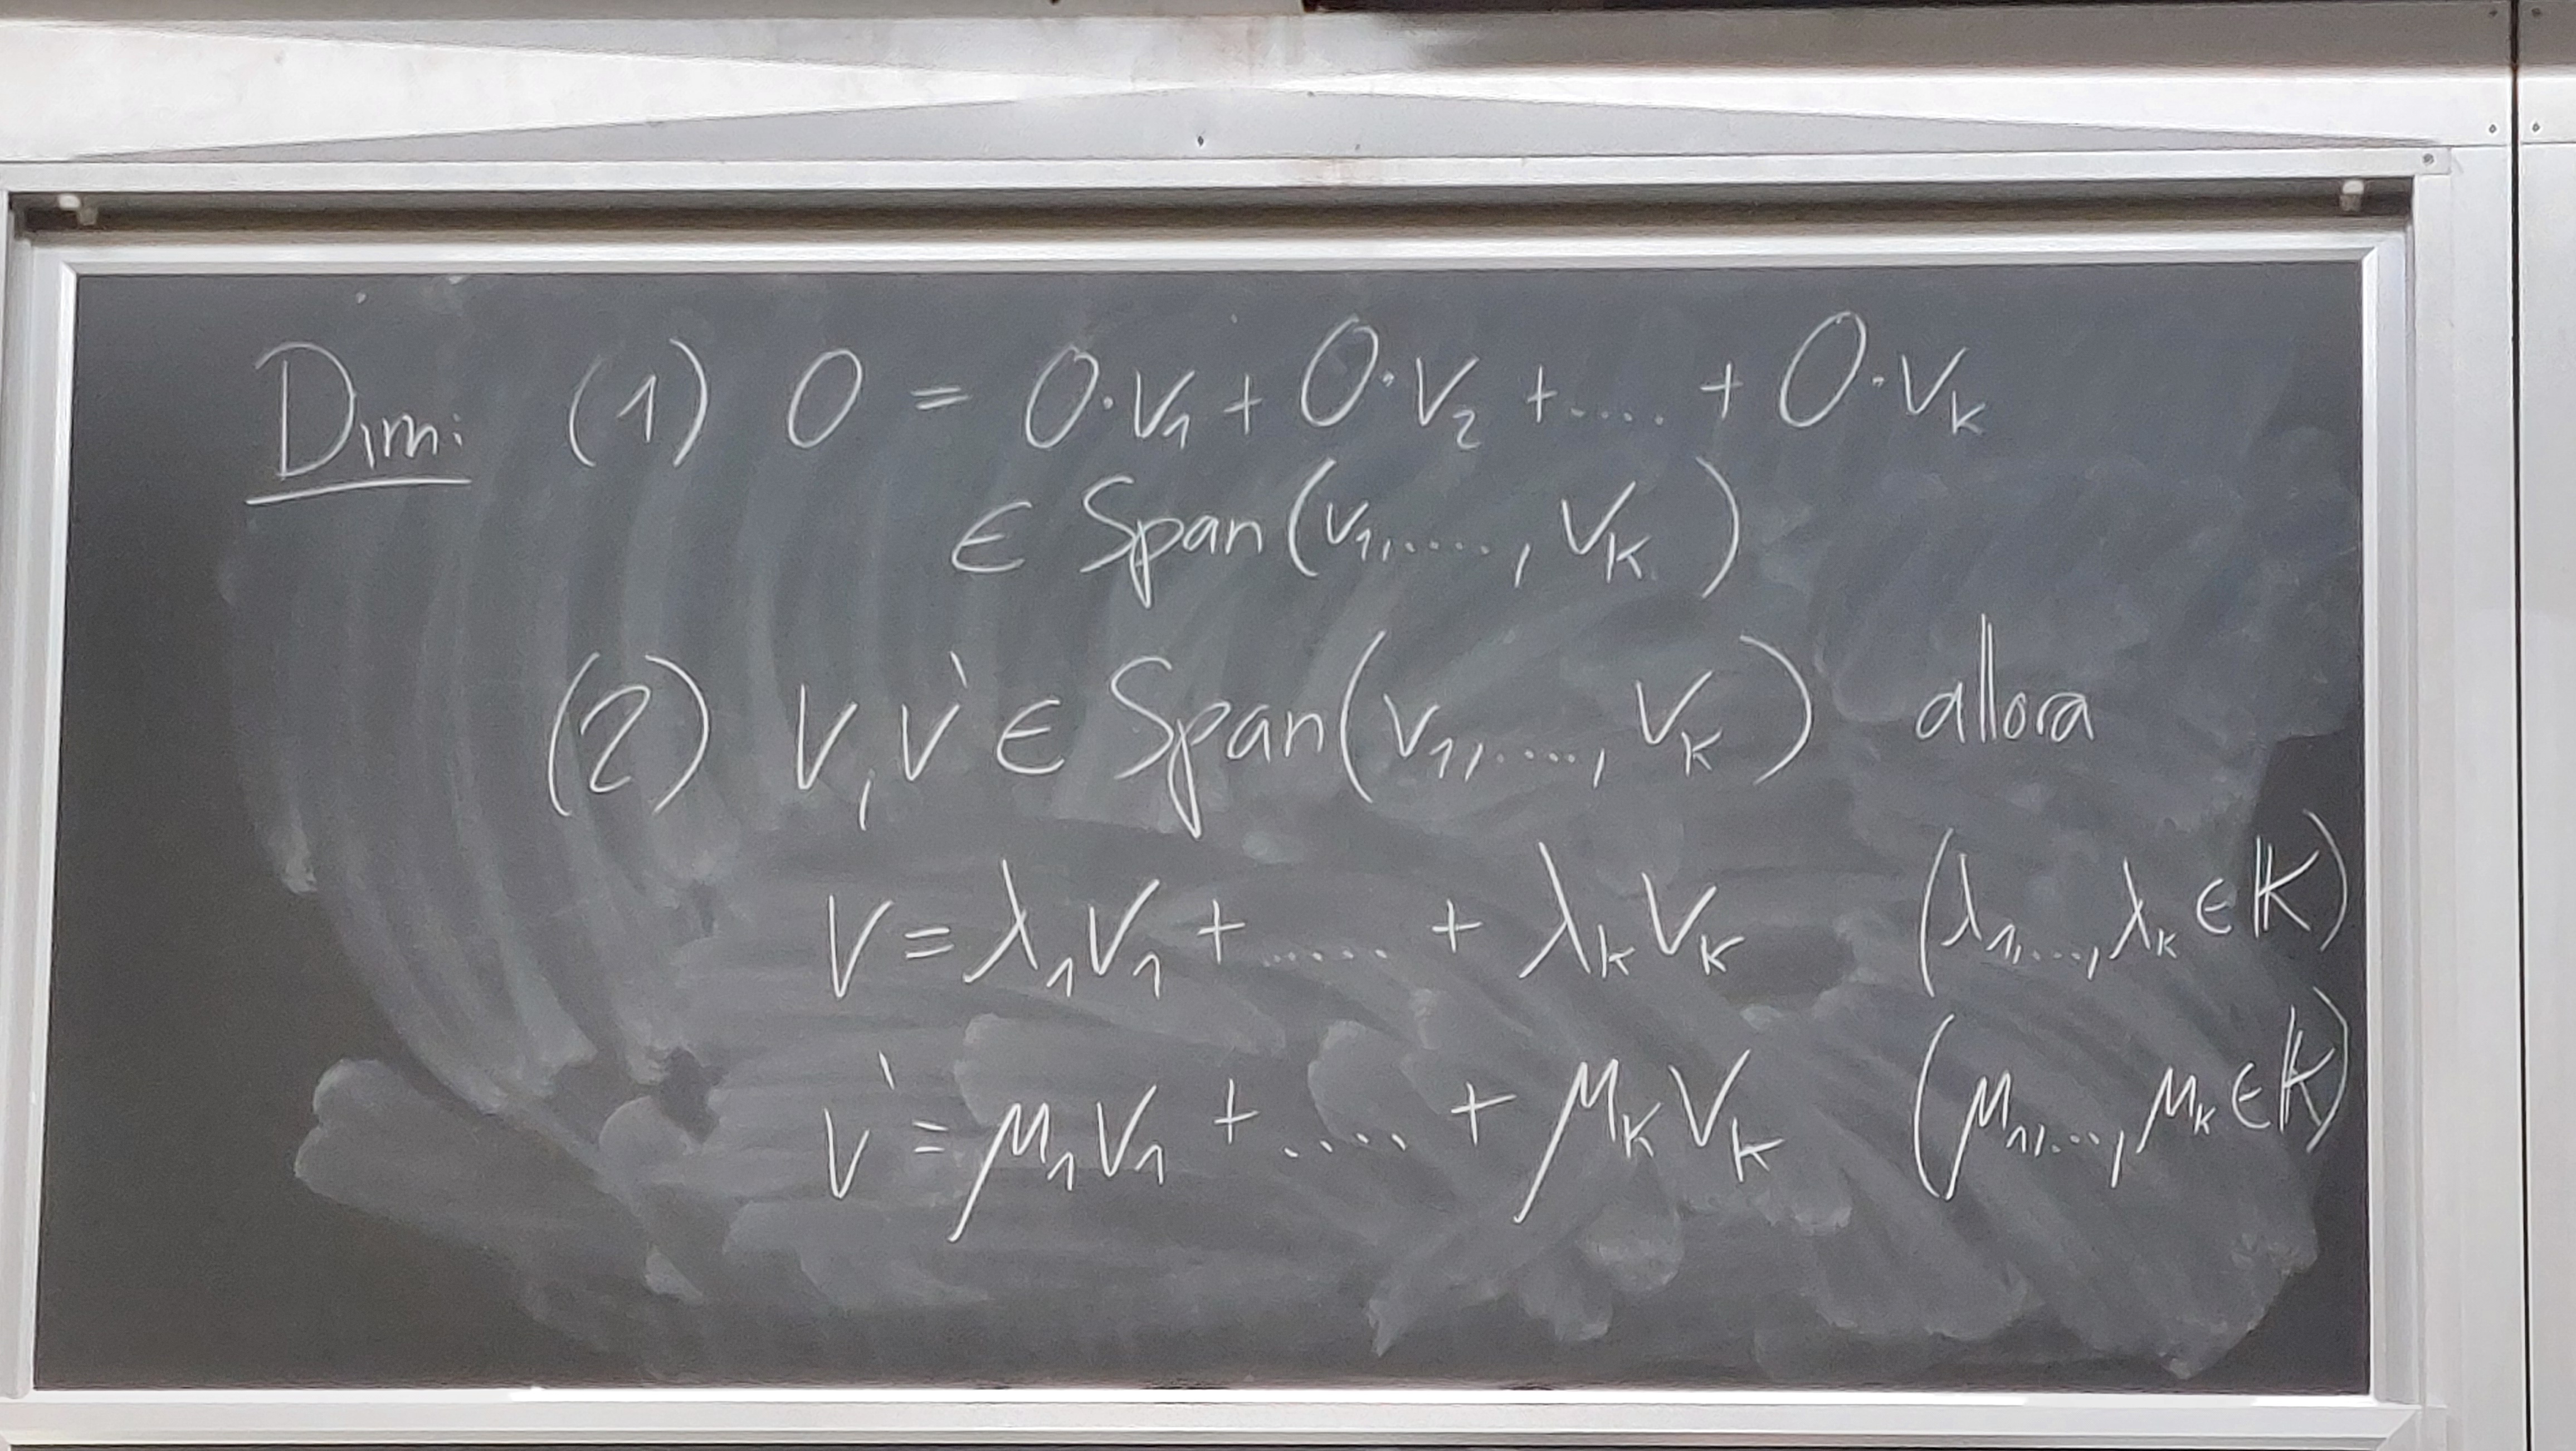 Dim: (1) 0 = 0·v₁ + 0·v₂ + .... + 0·vₖ
∈ Span(v₁,....., vₖ)
(2) v, v' ∈ Span(v₁,....., vₖ) allora
v = λ₁v₁ + ...... + λₖvₖ (λ₁,..., λₖ ∈ 𝕂)
v' = μ₁v₁ + ..... + μₖvₖ (μ₁,..., μₖ ∈ 𝕂)